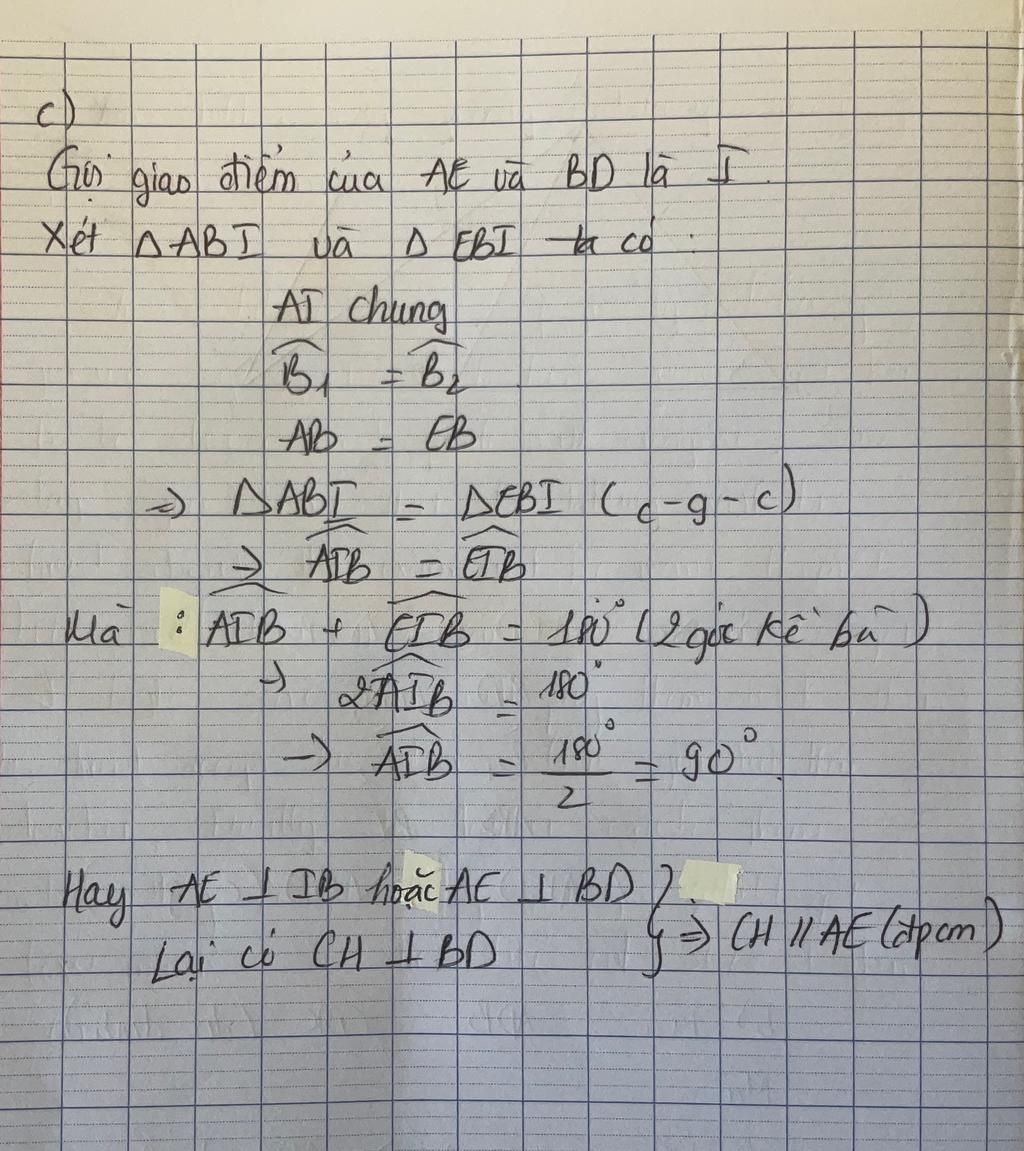 c)
Gọi giao điểm của AE và BD là I.
Xét ΔABI và ΔEBI ta có :
AI chung
\widehat{B_1} = \widehat{B_2}
AB = EB
=> ΔABI = ΔEBI (c-g-c)
-> \widehat{AIB} = \widehat{EIB}
Mà : \widehat{AIB} + \widehat{EIB} = 180° (2 góc kề bù)
-> 2\widehat{AIB} = 180°
-> \widehat{AIB} = \frac{180°}{2} = 90°.
Hay AE ⊥ IB hoặc AE ⊥ BD }
Lại có CH ⊥ BD } => CH // AE (đpcm)